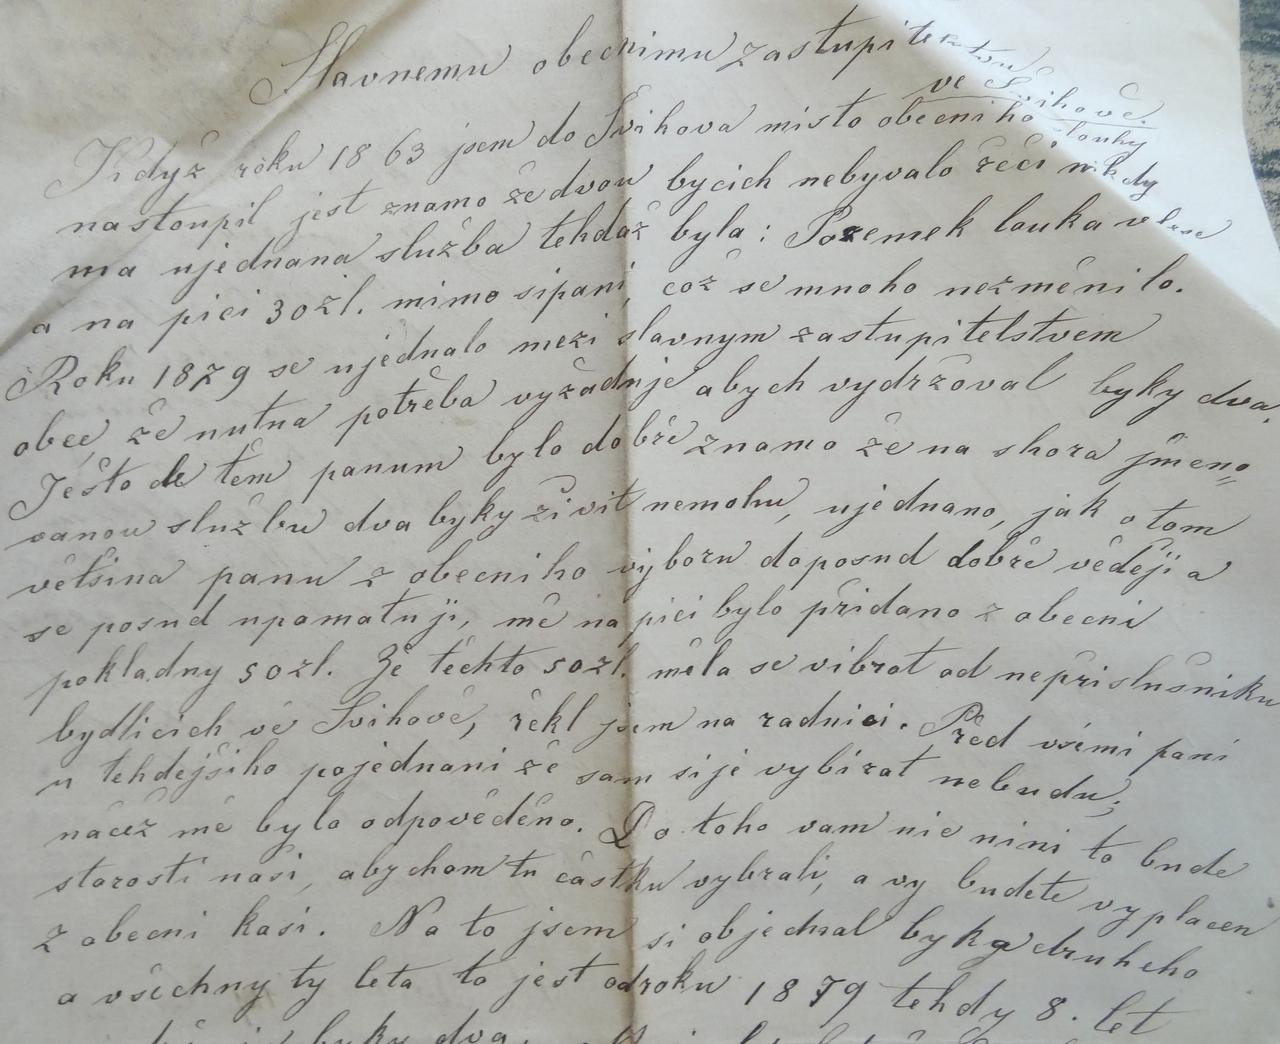 Slavnemu obecnimu zastupitelstvu
ve Švihově.
Když roku 1863 jsem do Švihova misto obecniho slouhy
nastoupil jest znamo že dvou bycich nebyvalo řeči nikdy
ma ujednana služba tehdaž byla: Pozemek louka v lese
a na pici 30 zl. mimo sipani, což se mnoho nezměnilo.
Roku 1879 se ujednalo mezi slavnym zastupitelstvem
obce, že nutna potřeba vyžaduje abych vydržoval byky dva.
Ješto de těm panum bylo dobře znamo že na shora jmeno=
vanou službu dva byky živit nemohu, ujednano, jak o tom
většina panu z obecniho vyboru doposud dobře věději a
se posud upamatuji, mě na pici bylo přidano z obecni
pokladny 50 zl. Že těchto 50 zl. měla se vibrat od nepřislušniku
bydlicich ve Švihově, řekl jsem na radnici. Před všemi pani
u tehdejšiho pojednani že sam si je vybirat nebudu;
načež mě bylo odpověděno. Do toho vam nic neni to bude
starosti naši, abychom tu častku vybrali, a vy budete vyplacen
z obecni kasi. Na to jsem si objednal byka druheho
a všechny ty leta to jest od roku 1879 tehdy 8. let
byky dva.